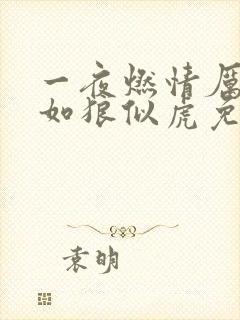 一夜燃情厲
如狼似虎免
袁明